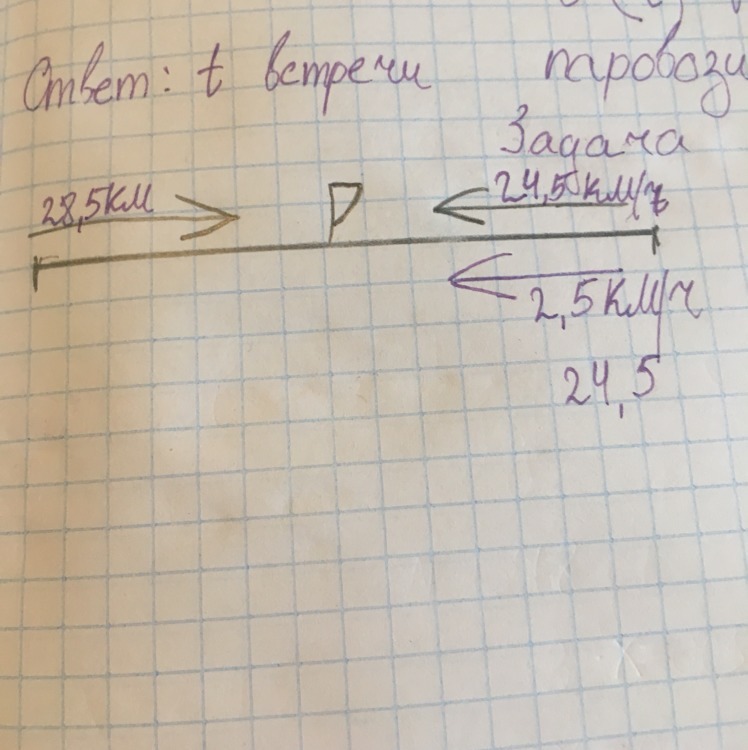 Ответ: t встречи паровози
Задача
28,5км
24,5км/ч
2,5км/ч
24,5